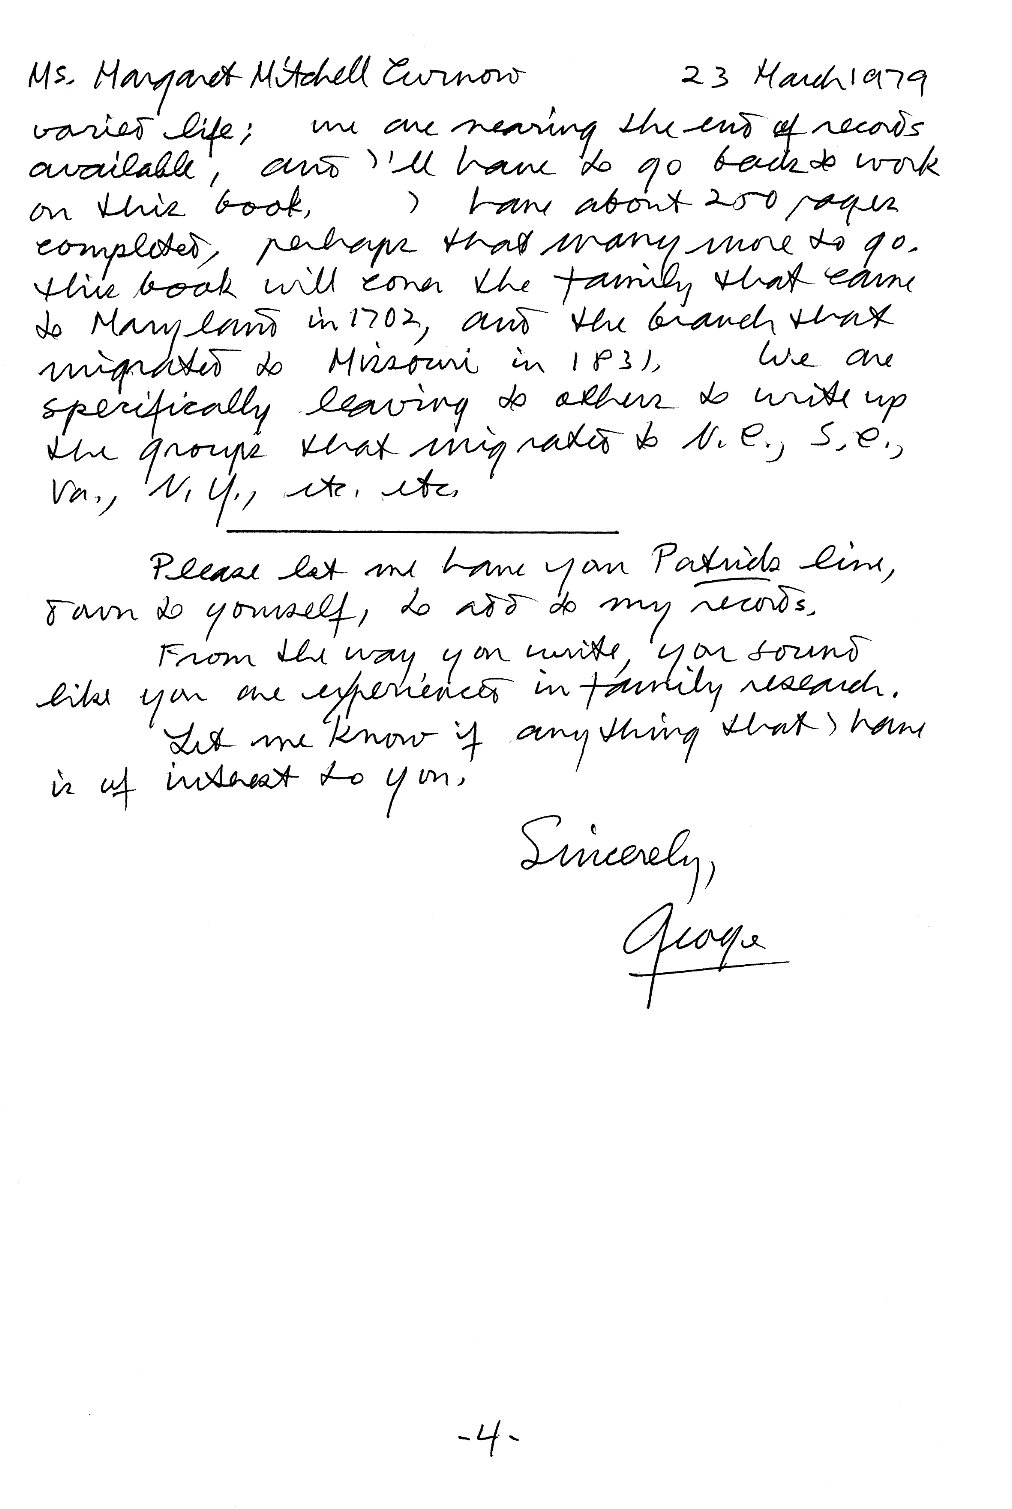 Ms. Margaret Mitchell Curnow 23 March 1979
varied life; we are nearing the end of records
available, and I'll have to go back to work
on this book. I have about 250 pages
completed, perhaps that many more to go.
This book will cover the family that came
to Maryland in 1702, and the branch that
migrated to Missouri in 1831. We are
specifically leaving to others to write up
the groups that migrated to N.C., S.C.,
Va., N.Y., etc. etc.
Please let me have your Patrick line,
down to yourself, to add to my records.
From the way you write, you sound
like you are experienced in family research.
Let me know if anything that I have
is of interest to you.
Sincerely,
George
-4-